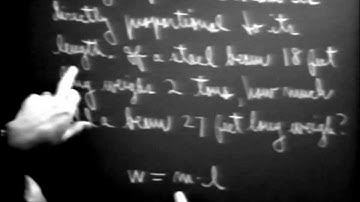 directly proportional to its
length. If a steel beam 18 feet
weighs 2 tons, how much
a beam 27 feet long weigh?
w = m · l